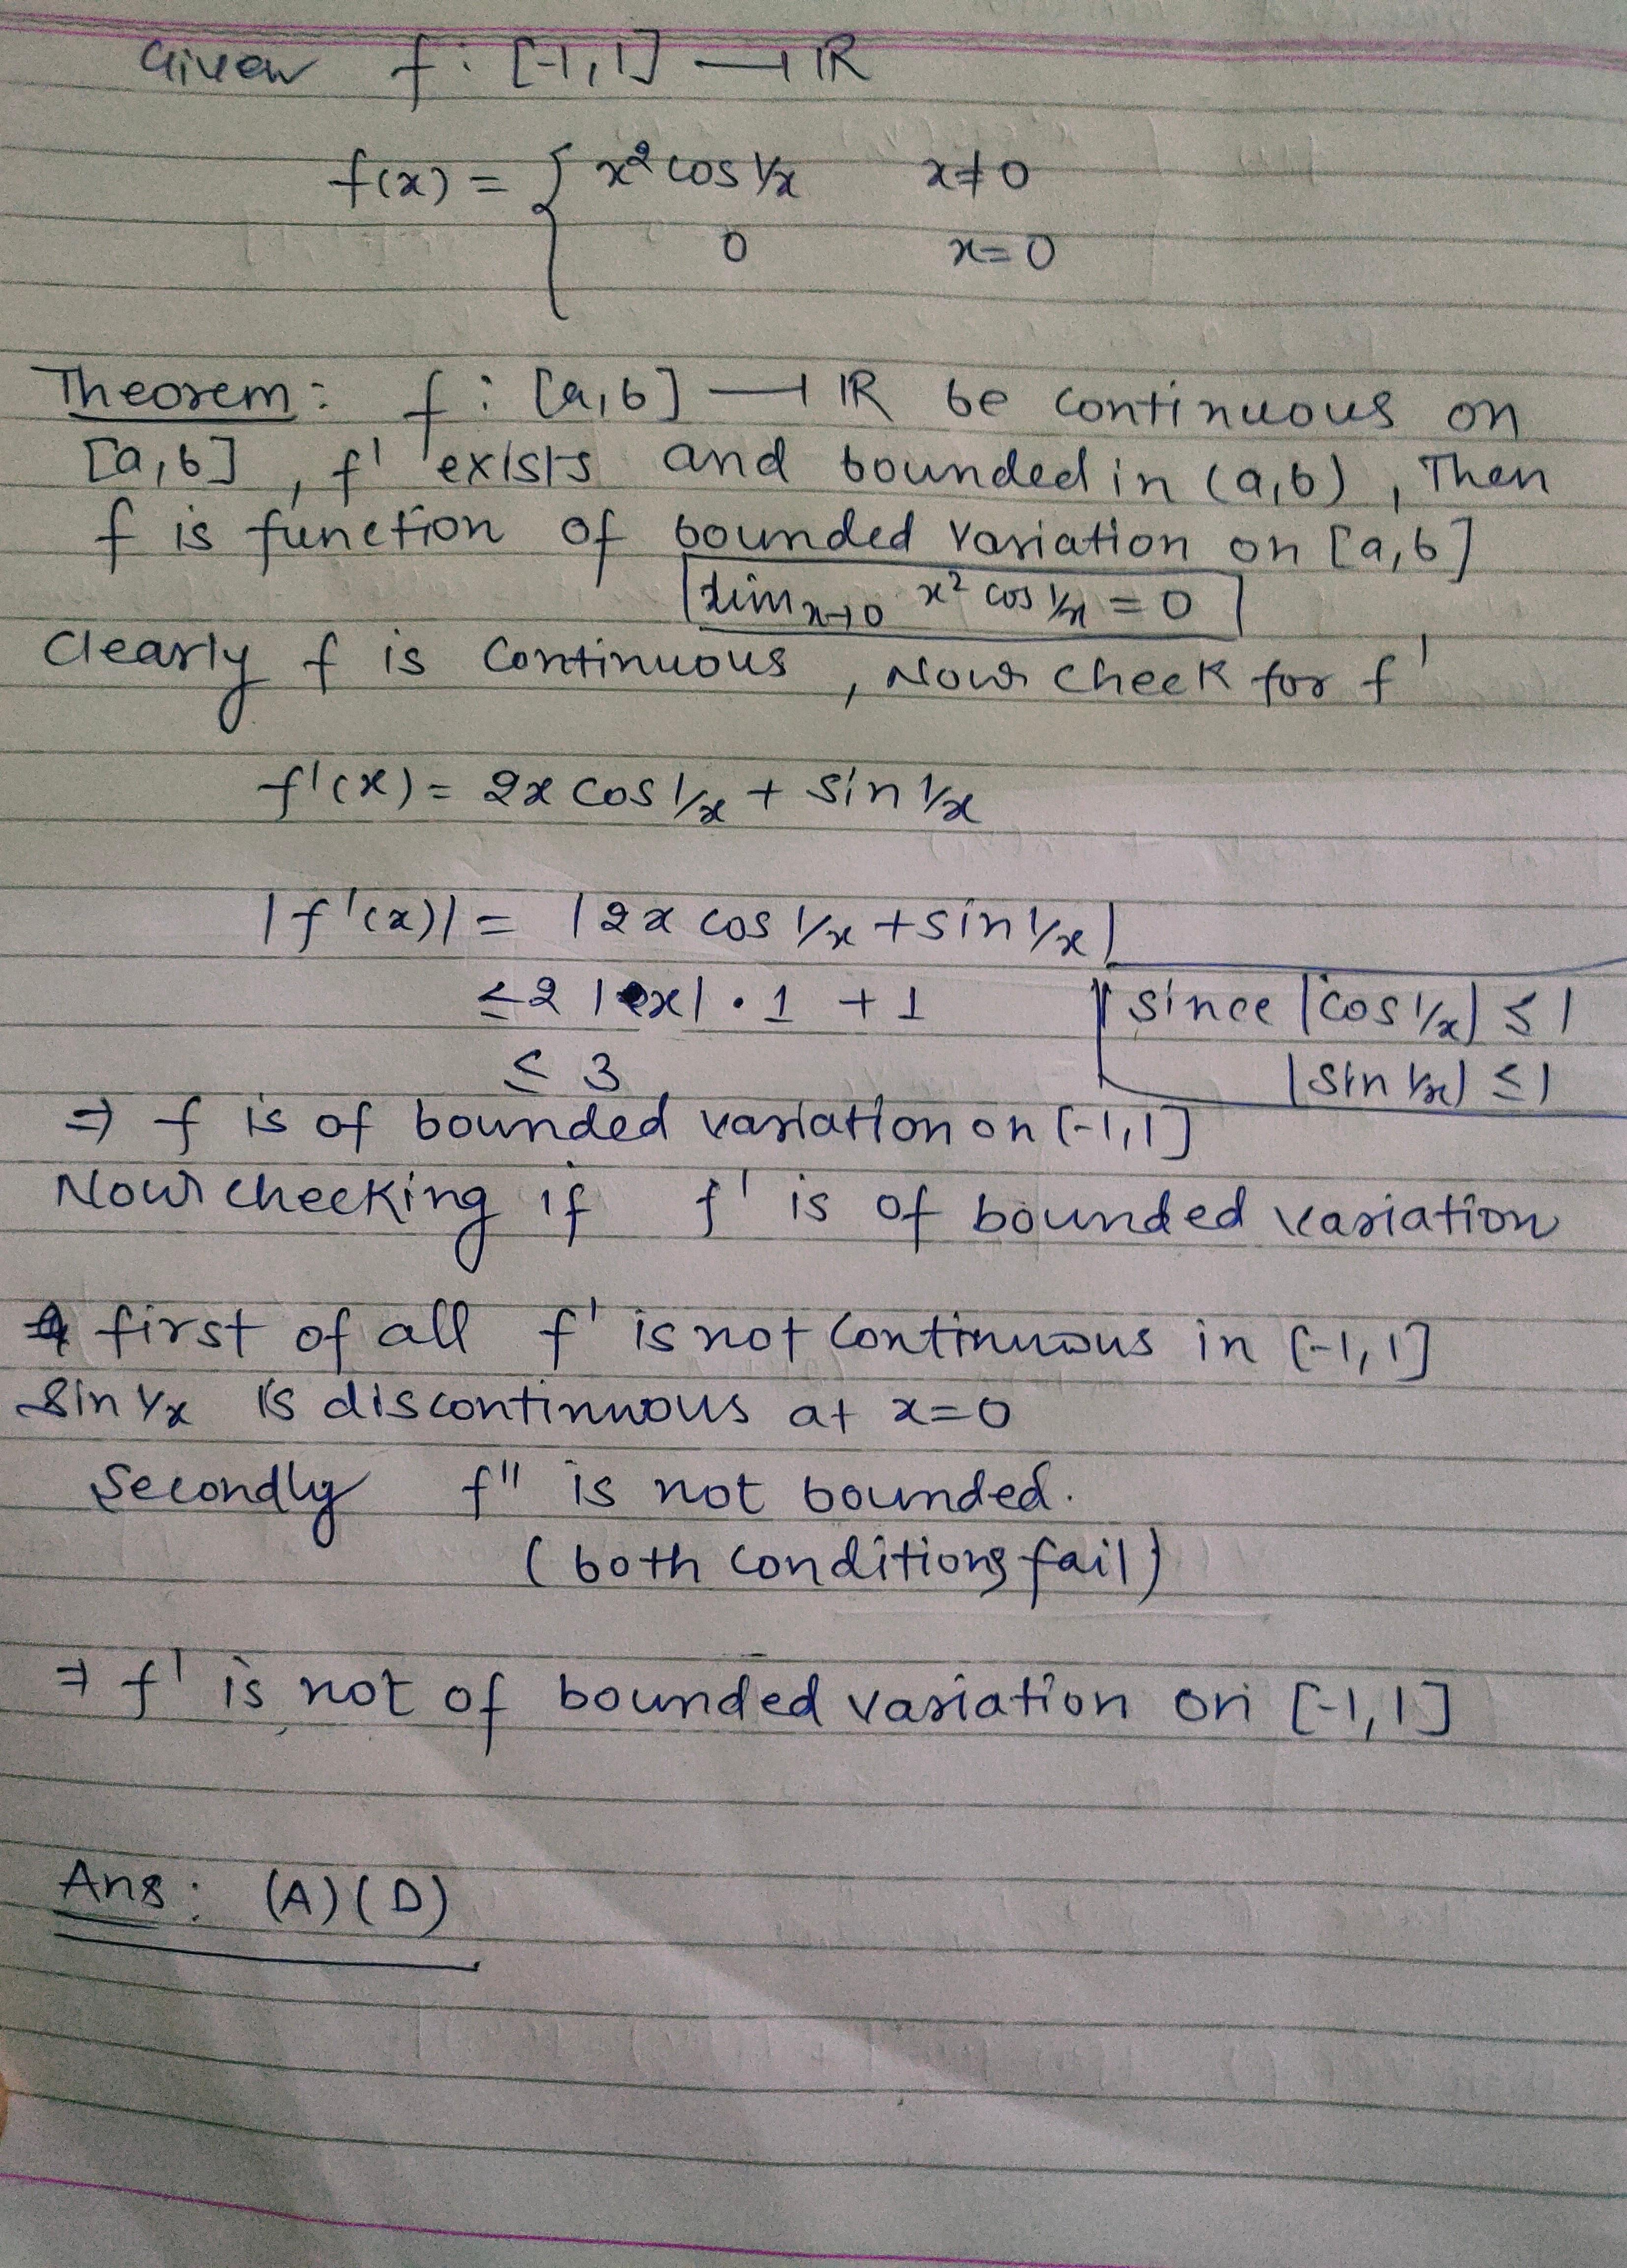 Given f : [-1,1] → IR
f(x) = { x² cos 1/x x≠0
0 x=0
Theorem: f : [a,b] → IR be continuous on
[a,b] , f' exists and bounded in (a,b) , Then
f is function of bounded variation on [a,b]
lim x→0 x² cos 1/x = 0
Clearly f is continuous , Now check for f'
f'(x) = 2x cos 1/x + sin 1/x
|f'(x)| = |2x cos 1/x + sin 1/x|
≤ 2 |x| · 1 + 1 since |cos 1/x| ≤ 1
≤ 3 |sin 1/x| ≤ 1
⇒ f is of bounded variation on [-1,1]
Now checking if f' is of bounded variation
first of all f' is not continuous in [-1,1]
sin 1/x is discontinuous at x=0
Secondly f'' is not bounded.
(both conditions fail)
⇒ f' is not of bounded variation on [-1,1]
Ans: (A) (D)